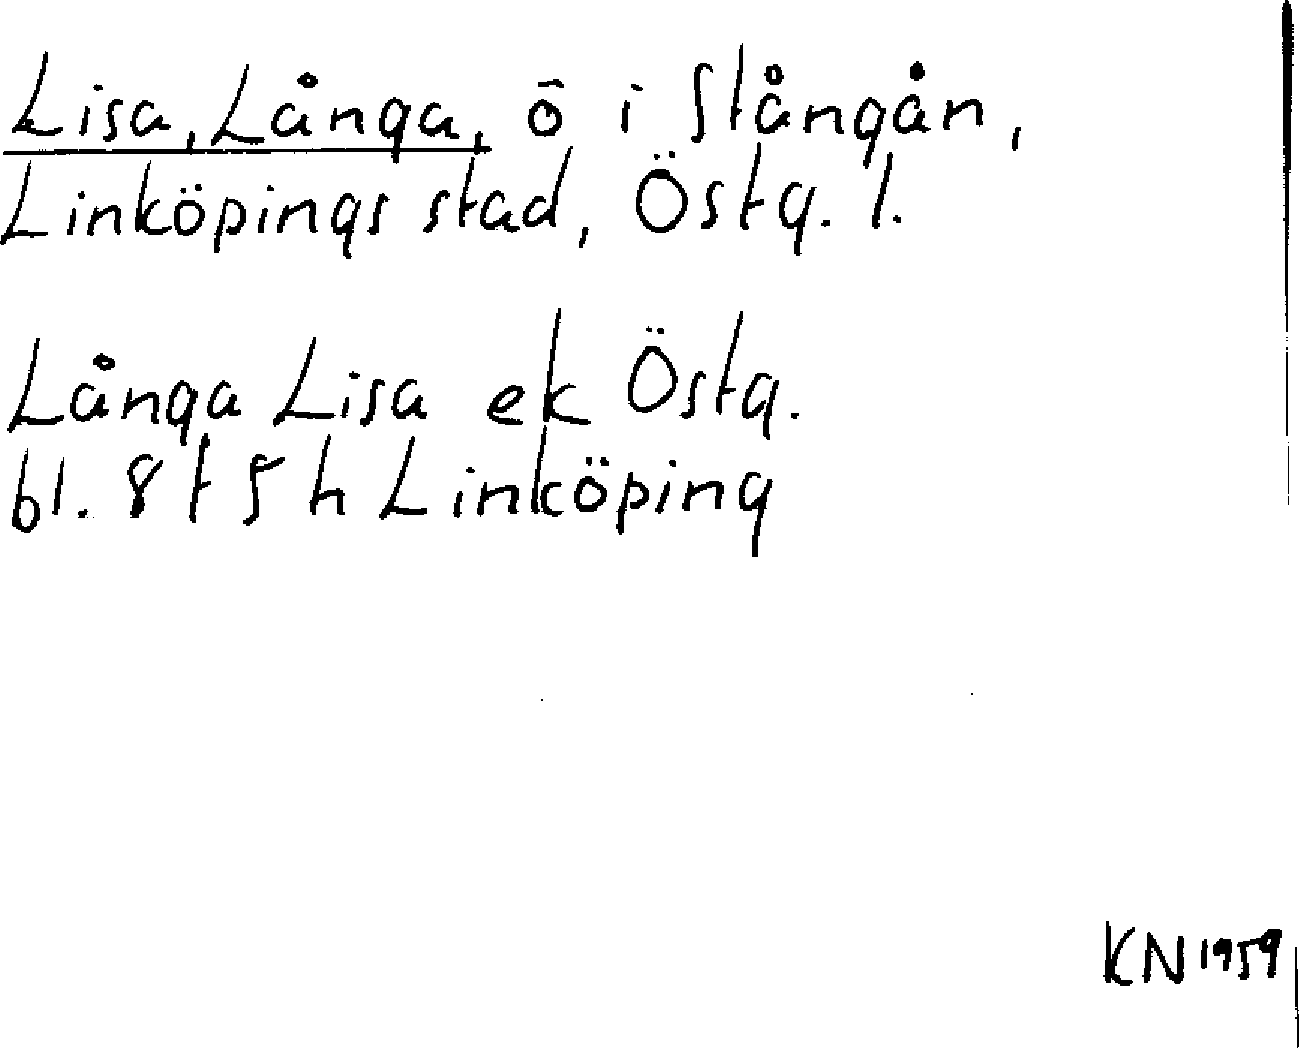 Lisa, Långa, ö i Stångån,
Linköpings stad, Östg. l.
Långa Lisa ek Östg.
bl. 8 f 5 h Linköping
KN 1959